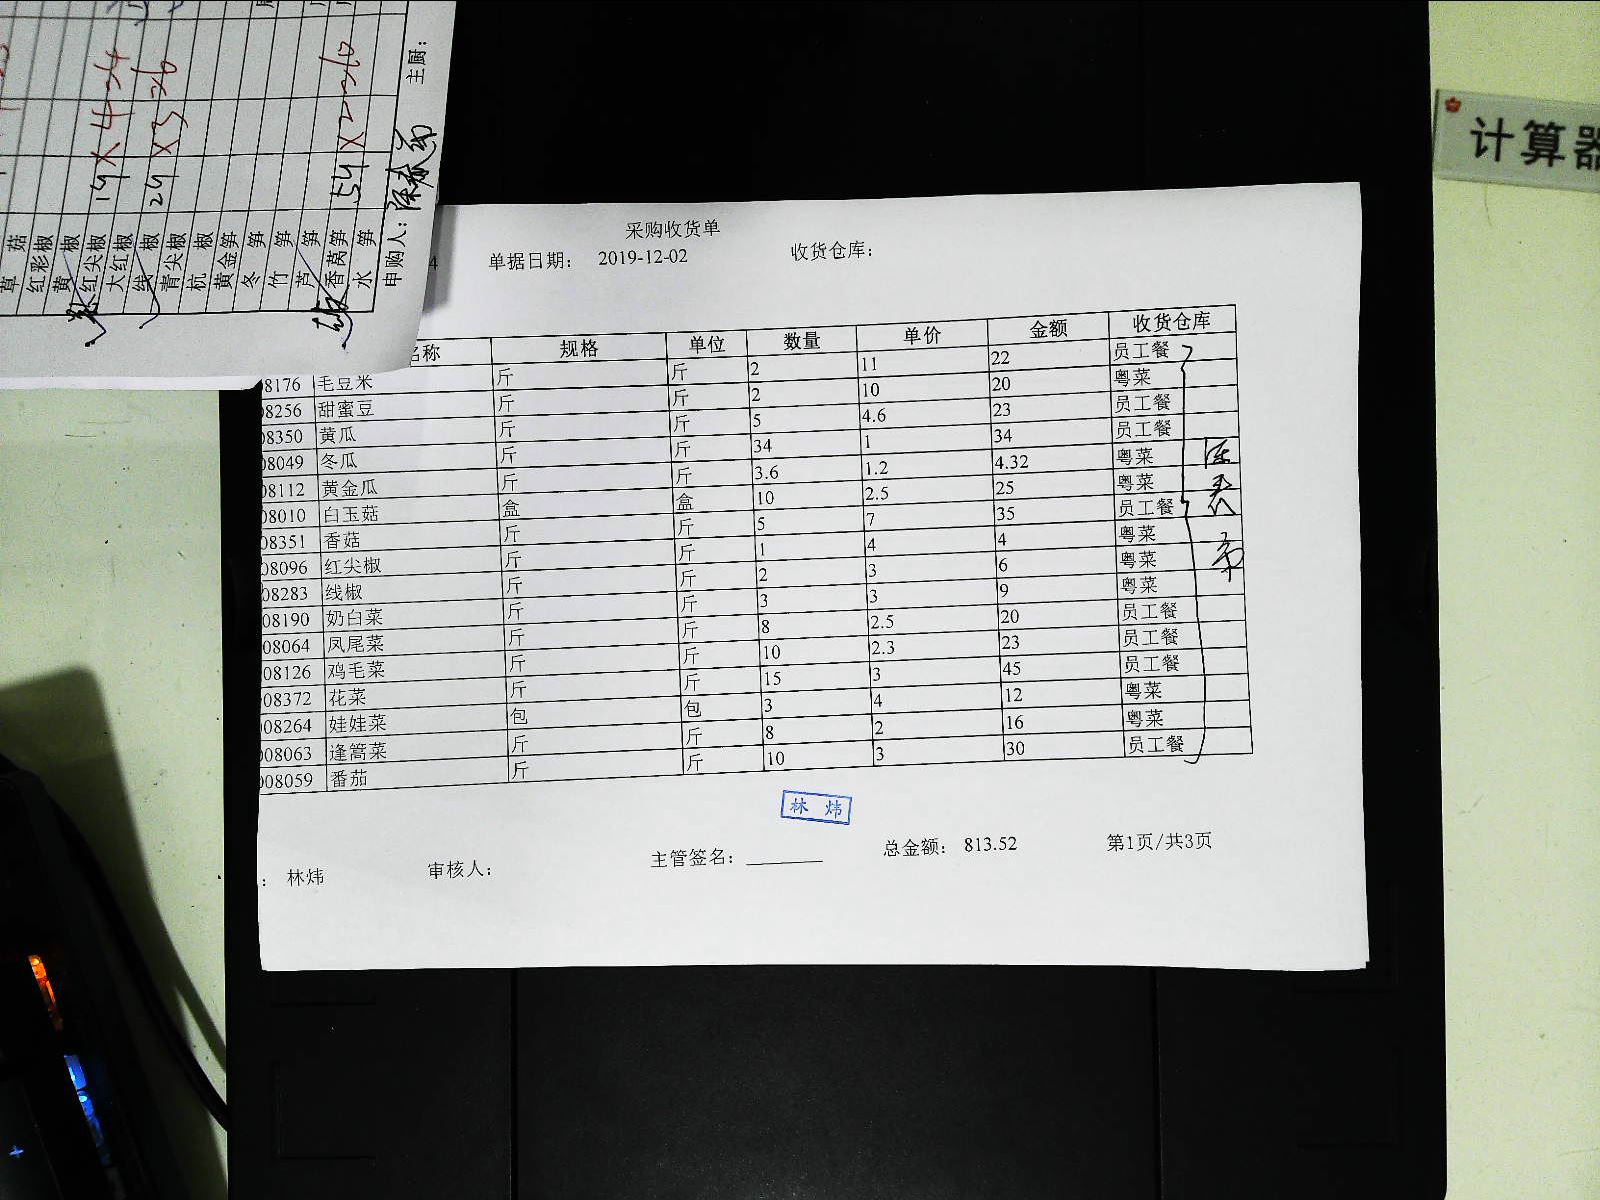 采购收货单
4 单据日期： 2019-12-02 收货仓库：
名称 规格 单位 数量 单价 金额 收货仓库
08176 毛豆米 斤 斤 2 11 22 员工餐
08256 甜蜜豆 斤 斤 2 10 20 粤菜
08350 黄瓜 斤 斤 5 4.6 23 员工餐
08049 冬瓜 斤 斤 34 1 34 员工餐
08112 黄金瓜 斤 斤 3.6 1.2 4.32 粤菜
08010 白玉菇 盒 盒 10 2.5 25 粤菜
08351 香菇 斤 斤 5 7 35 员工餐
08096 红尖椒 斤 斤 1 4 4 粤菜
08283 线椒 斤 斤 2 3 6 粤菜
08190 奶白菜 斤 斤 3 3 9 粤菜
008064 凤尾菜 斤 斤 8 2.5 20 员工餐
08126 鸡毛菜 斤 斤 10 2.3 23 员工餐
08372 花菜 斤 斤 15 3 45 员工餐
08264 娃娃菜 包 包 3 4 12 粤菜
08063 蓬篙菜 斤 斤 8 2 16 粤菜
008059 番茄 斤 斤 10 3 30 员工餐
林 炜
： 林炜 审核人： 主管签名： 总金额： 813.52 第1页/共3页
计算器
草菇
红彩椒
黄椒
红尖椒
大红椒
线椒
青尖椒
杭椒
黄金笋
冬笋
竹笋
芦笋
香莴笋
水笋
申购人： 主厨：